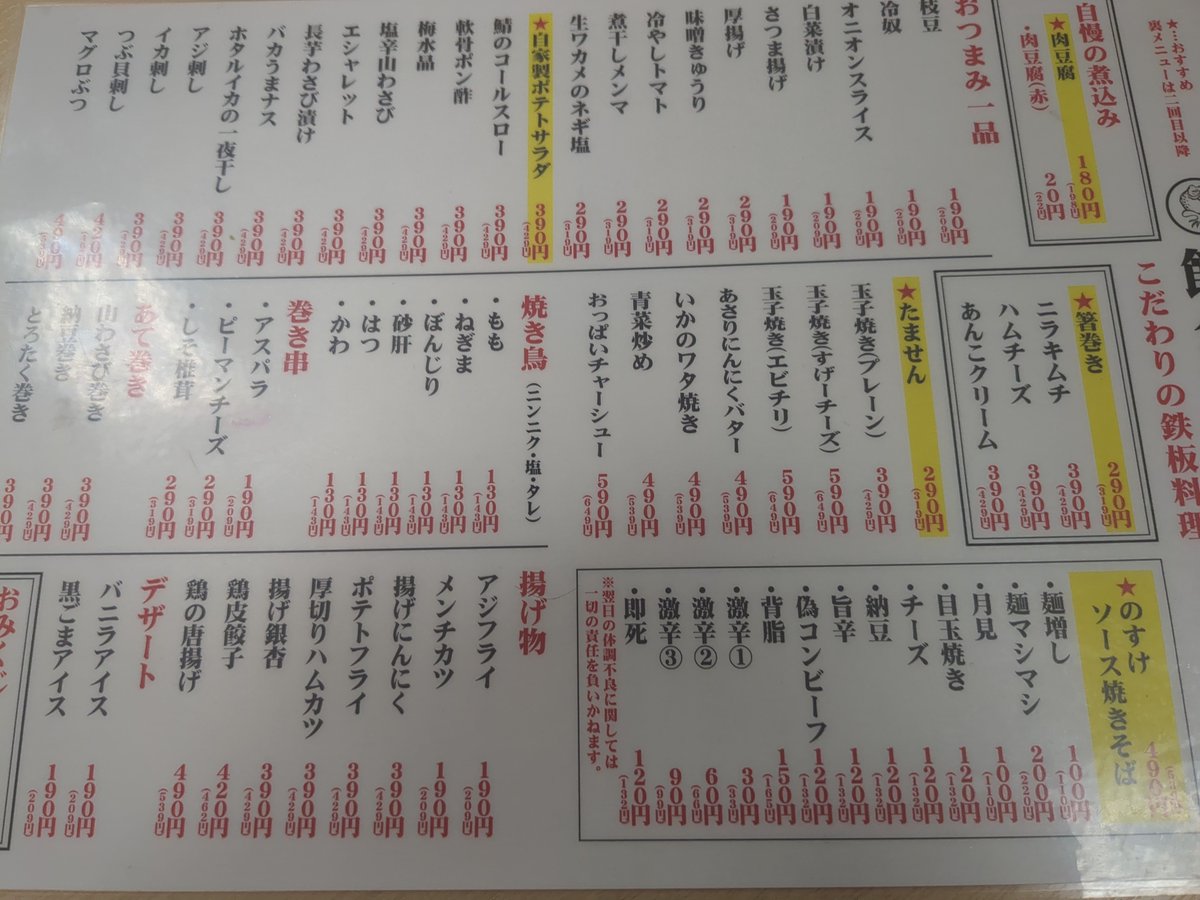 ★…おすすめ
裏メニューは二回目以降
自慢の煮込み
★肉豆腐 180円(198円)
・肉豆腐(赤) 20円(22円)
おつまみ一品
枝豆 190円(209円)
冷奴 190円(209円)
オニオンスライス 190円(209円)
白菜漬け 190円(209円)
さつま揚げ 190円(209円)
厚揚げ 290円(319円)
味噌きゅうり 290円(319円)
冷やしトマト 290円(319円)
煮干しメンマ 290円(319円)
生ワカメのネギ塩 290円(319円)
★自家製ポテトサラダ 390円(429円)
鯖のコールスロー 390円(429円)
軟骨ポン酢 390円(429円)
梅水晶 390円(429円)
塩辛山わさび 390円(429円)
エシャレット 390円(429円)
長芋わさび漬け 390円(429円)
バカうまナス 390円(429円)
ホタルイカの一夜干し 390円(429円)
アジ刺し 390円(429円)
イカ刺し 390円(429円)
つぶ貝刺し 420円
マグロぶつ 490円
こだわりの鉄板料理
★箸巻き 290円(319円)
ニラキムチ 390円(429円)
ハムチーズ 390円(429円)
あんこクリーム 390円(429円)
★たません 290円(319円)
玉子焼き(プレーン) 390円(429円)
玉子焼き(すげーチーズ) 590円(649円)
玉子焼き(エビチリ) 590円(649円)
あさりにんにくバター 490円(539円)
いかのワタ焼き 490円(539円)
青菜炒め 490円(539円)
おっぱいチャーシュー 590円(649円)
焼き鳥(ニンニク・塩・タレ)
・もも 130円(143円)
・ねぎま 130円(143円)
・ぼんじり 130円(143円)
・砂肝 130円(143円)
・はつ 130円(143円)
・かわ 130円(143円)
巻き串
・アスパラ 190円(209円)
・ピーマンチーズ 290円(319円)
・しそ椎茸 290円(319円)
あて巻き
山わさび巻き 390円(429円)
納豆巻き 390円(429円)
とろたく巻き 390円(429円)
★のすけ
ソース焼きそば 490円
・麺増し 100円(110円)
・麺マシマシ 200円(220円)
・月見 100円(110円)
・目玉焼き 120円(132円)
・チーズ 120円(132円)
・納豆 120円(132円)
・旨辛 120円(132円)
・偽コンビーフ 120円(132円)
・背脂 150円(165円)
・激辛① 30円(33円)
・激辛② 60円(66円)
・激辛③ 90円(99円)
・即死 120円(132円)
※翌日の体調不良に関しては
一切の責任を負いかねます。
揚げ物
アジフライ 190円(209円)
メンチカツ 190円(209円)
揚げにんにく 390円(429円)
ポテトフライ 390円(429円)
厚切りハムカツ 390円(429円)
揚げ銀杏 390円(429円)
鶏皮餃子 420円(462円)
鶏の唐揚げ 490円(539円)
デザート
バニラアイス 190円(209円)
黒ごまアイス 190円(209円)
おみくじ